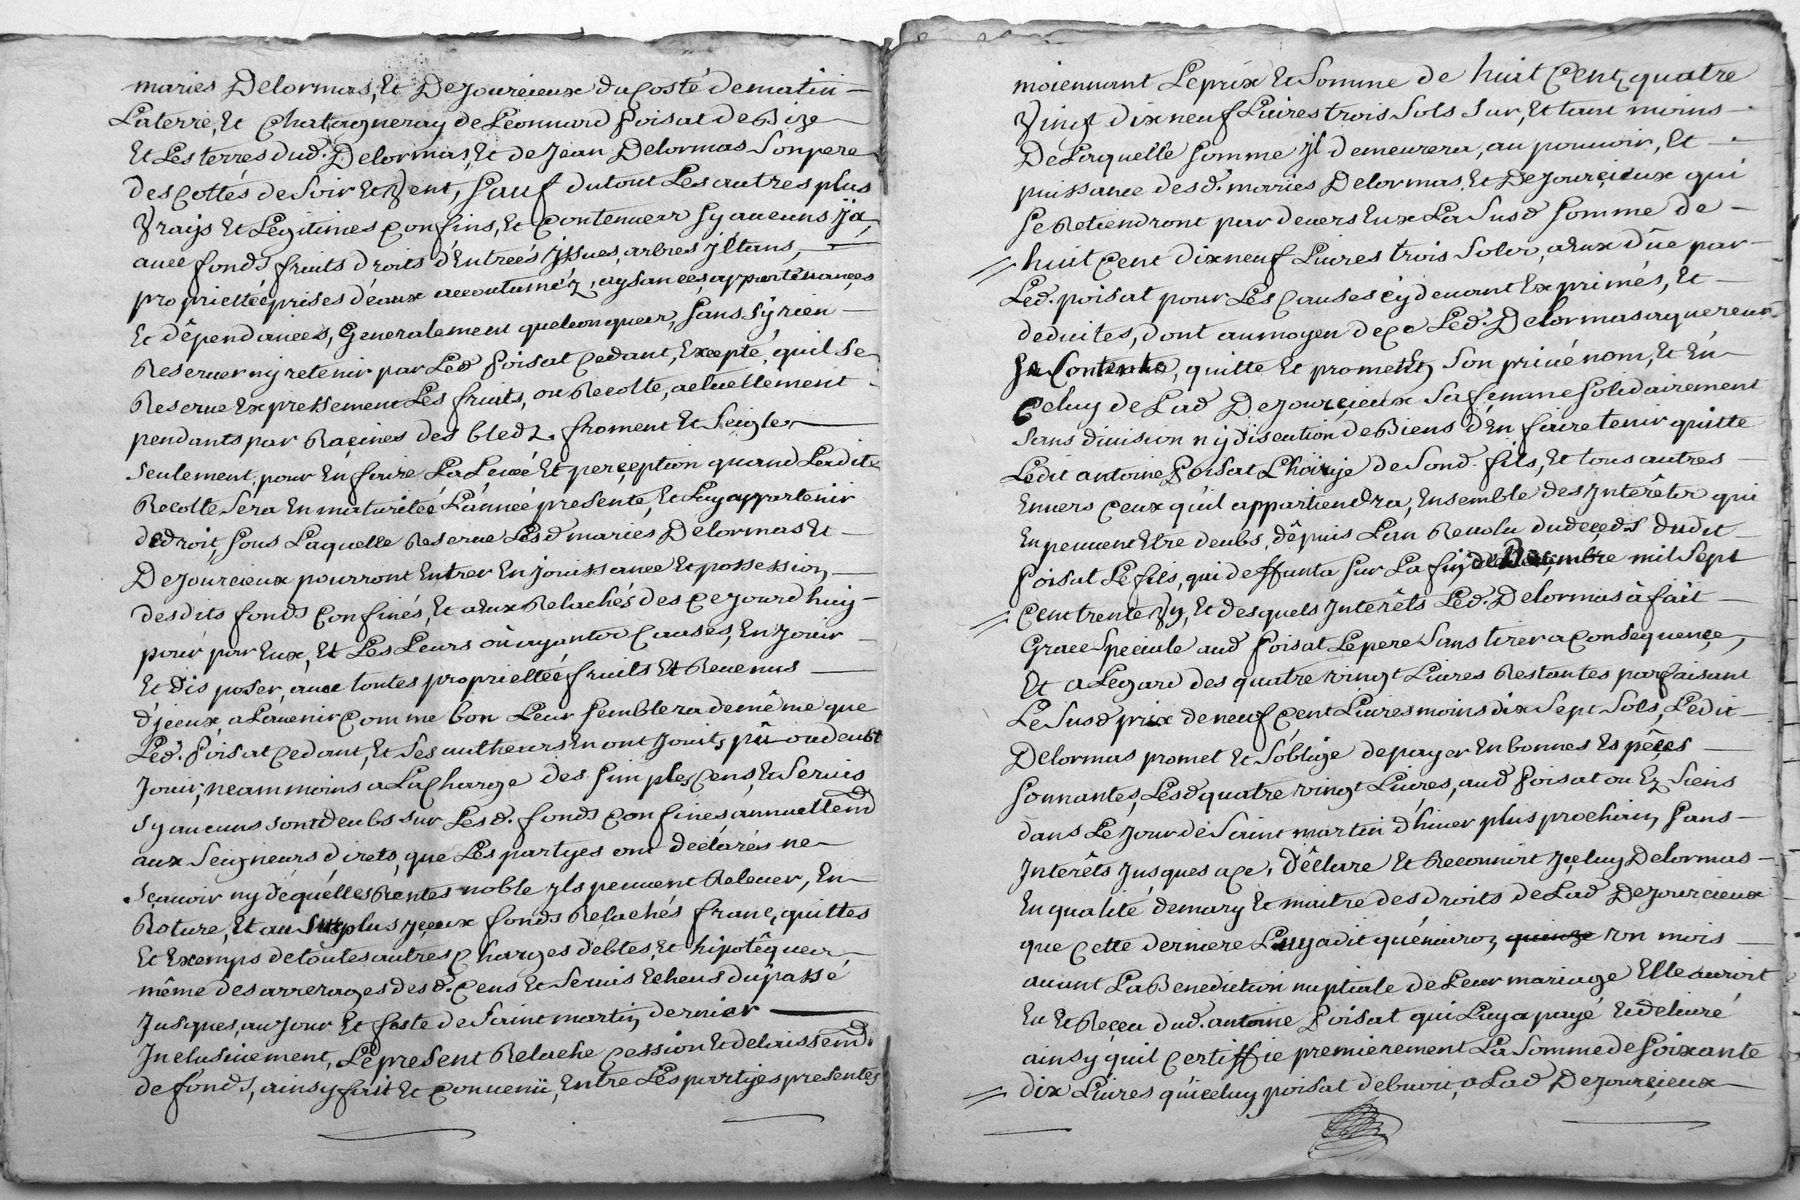 maries Delormas, Et Dejourcieux du Costé de matin
La terre, Et Chatagneray de Leonnard Poisat de Bize
Et Les terres dud. Delormas, Et de Jean Delormas Son pere
des Cottés de Soir Et Vent, Sauf du tout Les autres plus
Vrays Et Legitimes Confins, Et Contenuer Sy aucuns ÿa
avec fonds fruits droits d'Entreés Jssues, arbres ÿ Etans,
propriettéé prises d'éaux accoutuméz, aysances appartenances
Et dépendances, Generalement quelconquer, Sans Sÿ rien
Reserver ny retenir par Led Poisat Cedant, Excepté, qu'il Se
Reserve Expressement Les fruits, ou Recolte, actuellement
pendants par Racines des bledz froment Et Seigler
Seulement, pour En faire La Levéé Et perçeption quand Ladite
Recolte Sera En maturitéé L'année presente, Et Luy appartenir
de droit, Sous Laquelle Reserve Lesd maries Delormas Et
Dejourcieux pourront Entrer En jouissance Et possession
desdits fonds Confinés, Et a Eux Relachés des Cejourdhuy
pour par Eux, Et Les Leurs où ayantor Causes, En Jouir
Et disposer, avec toutes propriettéé fruits Et Revenus
d'jceux a L'avenir Comme bon Leur Semblera de même que
Led. Poisat Cedant, Et Ses autheurs En ont Jouit, pû ou deubt
Jouir, neammoins a La Charge des Simples Cens, Et Servis
Sy aucuns Sont deubs sur Lesd. fonds Confinés annuellemd
aux Seigneurs directs, que Les partyes ont déclarés ne
sçavoir ny dequelles Rentes noble Jls peuvent Relever, En
Roture, Et au Surplus jceux fonds Relachés franc, quittes
Et Exemps de toutes autres Charges debtes, Et hipotêquer
même des arrerages desd. Cens Et Servis Echeus du passé
Jusques, au Jour Et feste de Saint martin dernier
Jnclusivement, Le present Relache Cession Et delaissemd.
de fonds, ainsy fait Et Convenü, Entre Les partyes presentes
moiennant Le prix Et Somme de huit Cent, quatre
Vingt dix neuf Livres trois Sols Sur, Et tant moins
De Laquelle Somme jl demeurera, au pouvoir, Et
puissance desd. maries Delormas, Et Dejourcieux qui
Se Retiendront par devers Eux La Susd Somme de
huit Cent dixneuf Livres trois Solor, a Eux düe par
Led. poisat pour Les Causes Cy devant Exprimés, Et
deduites, dont au moyen de Ce Led. Delormas aquereur
Se Contente, quitte Et promet En Son privé nom, Et En
Celuy de Lad Dejourcieux Sa femme Solidairement
Sans division ny discution de Biens d'En faire tenir quitte
Ledit antoine Poisat L'hoirye de Sond. fils, Et tous autres
Envers Ceux qu'il appartiendra, Ensemble des Jnterêtor qui
En peuvent Etre deubs, dépuis L'an Revolu du deceds dudit
Poisat Le fils, qui deffunta Sur La fin de Decembre mil Sept
Cent trente Vn, Et desquels Jnterêts Led. Delormas à fait
Grace Speciale aud Poisat Le pere Sans tirer a Consequence,
Et a L'egard des quatre vingt Livres Restantes parfaisant
Le Susd prix de neuf Cent Livres moins dix Sept Sols, Ledit
Delormas promet Et S'oblige de payer En bonnes Espêces
Sonnantes, Lesd quatre vingt Livres, aud Poisat ou Ez Siens
dans Le Jour de Saint martin d'hiver plus prochain, Sans
Jnterêts Jusques a Ce, Déclare Et Reconnoit Jçeluy Delormas
En qualité de mary Et maitre des droits de Lad Dejourcieux
que Cette derniere Luy a dit qu'environ quinze ron mois
avant La Benediction nuptiale de Leur mariage Elle auroit
Eu Et Reçeu dud. antoine Poisat qui Luy a payé Et delivré
ainsy qu'il Certiffie premierement La Somme de Soixante
dix Livres qu'iceluy poisat debvoit, a Lad Dejourcieux